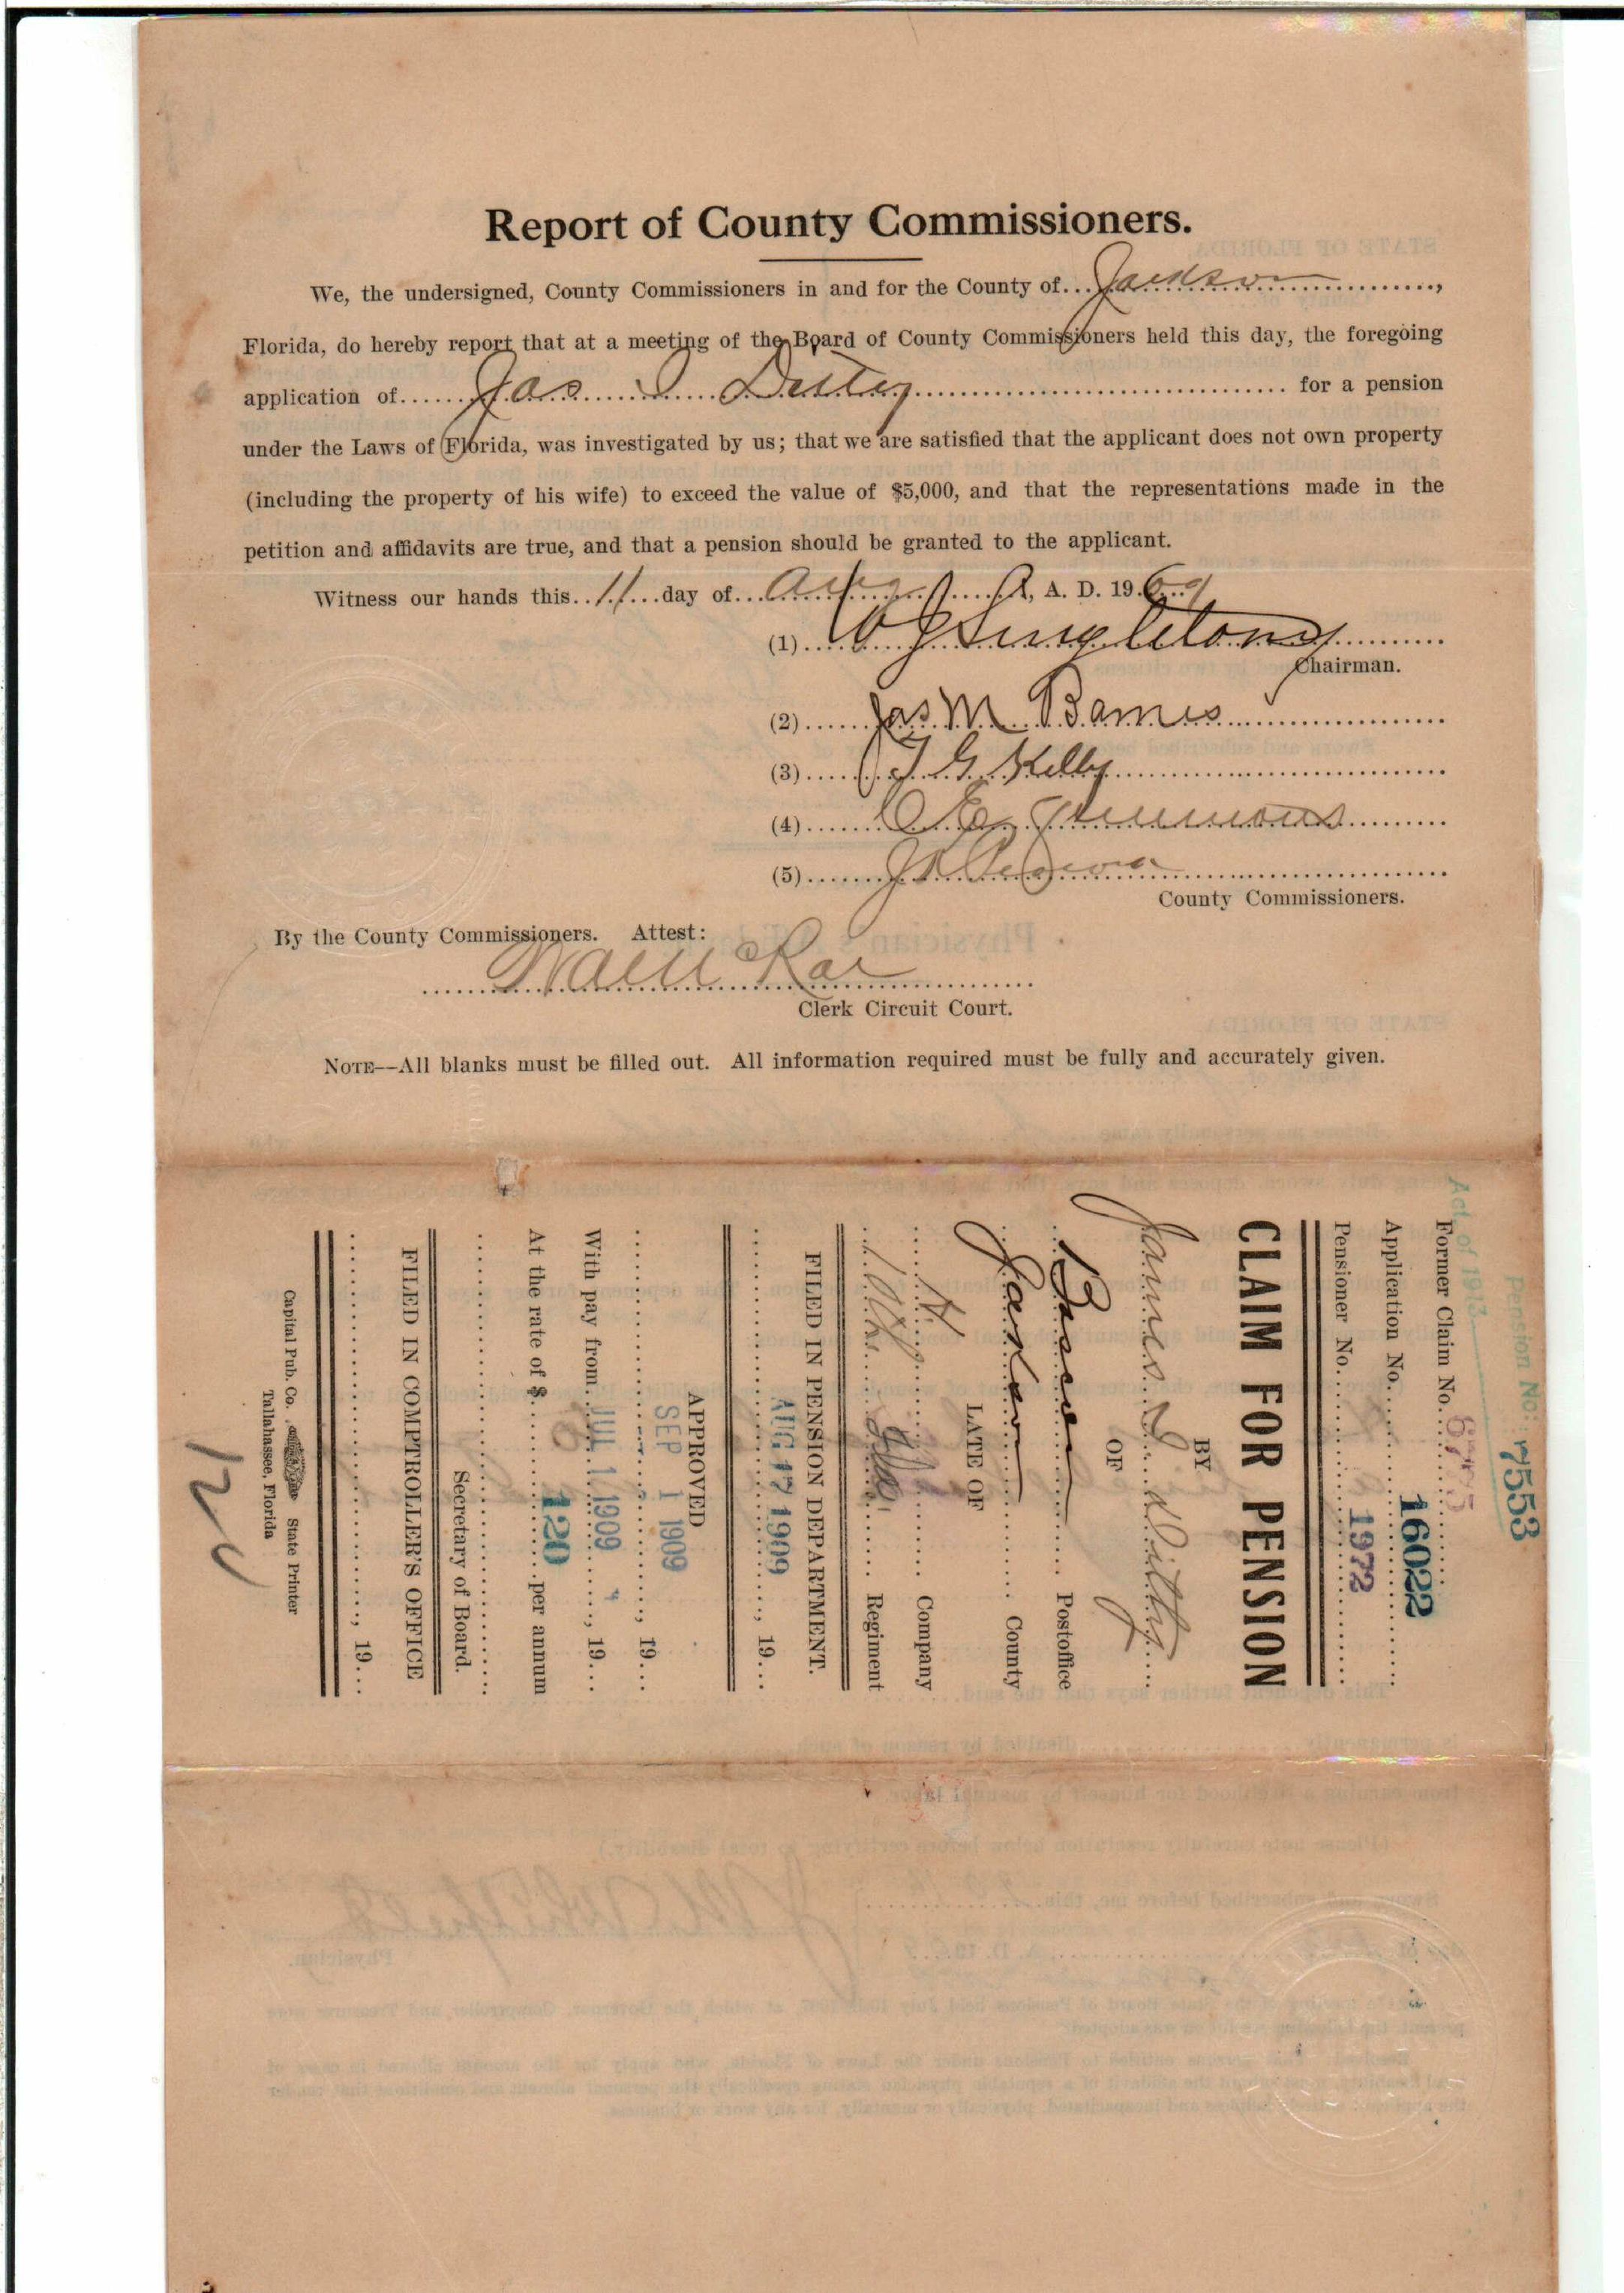 Report of County Commissioners.
We, the undersigned, County Commissioners in and for the County of Jackson,
Florida, do hereby report that at a meeting of the Board of County Commissioners held this day, the foregoing
application of Jas for a pension
under the Laws of Florida, was investigated by us; that we are satisfied that the applicant does not own property
(including the property of his wife) to exceed the value of $5,000, and that the representations made in the
petition and affidavits are true, and that a pension should be granted to the applicant.
Witness our hands this 11 day of Aug, A. D. 1909
(1) Singletary
Chairman.
(2) Jas M Barnes
(3) T G Kelly
(4) C E
(5)
County Commissioners.
By the County Commissioners. Attest:
Clerk Circuit Court.
NOTE—All blanks must be filled out. All information required must be fully and accurately given.
Pension No: 7553
Act of 1913
Former Claim No. 6775
Application No. 16022
Pensioner No. 1972
CLAIM FOR PENSION
BY
James
OF
Postoffice
Jackson County
LATE OF
Company
Regiment
FILED IN PENSION DEPARTMENT.
AUG 17 1909, 19...
APPROVED
SEP 1 1909, 19...
With pay from JUL 1 1909, 19...
At the rate of $ 120 per annum
Secretary of Board.
FILED IN COMPTROLLER'S OFFICE
, 19...
Capital Pub. Co. State Printer
Tallahassee, Florida
120